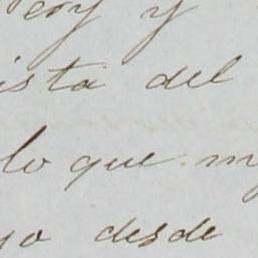 y
ista del
lo que
yo desde